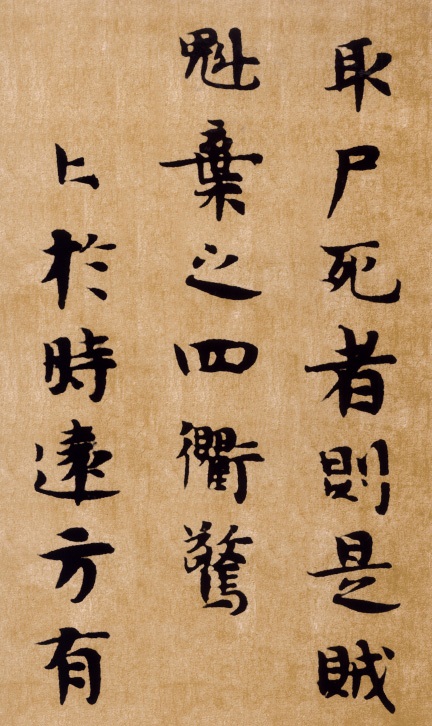 取尸死者則是賊
魁棄之四衢驚
上於時遠方有